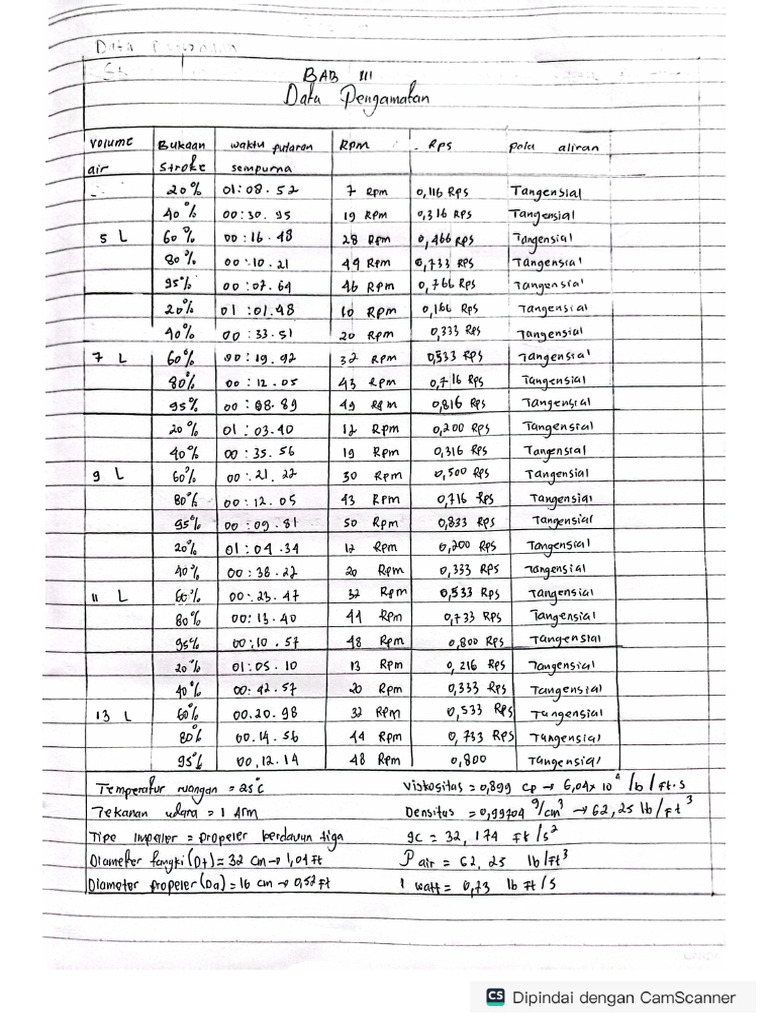 Data
BAB III
Data Pengamatan
Volume air | Bukaan Stroke | waktu putaran sempurna | RPM | RPS | pola aliran
20% 01:08.52 7 RPm 0,116 RPS Tangensial
40% 00:30.95 19 RPm 0,316 RPS Tangensial
5 L 60% 00:16.48 28 RPm 0,466 RPS Tangensial
80% 00:10.21 44 RPm 0,733 RPS Tangensial
95% 00:07.64 46 RPm 0,766 RPS Tangensial
20% 01:01.48 10 RPm 0,166 RPS Tangensial
40% 00:33.51 20 RPm 0,333 RPS Tangensial
7 L 60% 00:19.92 32 RPm 0,533 RPS Tangensial
80% 00:12.05 43 RPm 0,716 RPS Tangensial
95% 00:08.89 49 RPm 0,816 RPS Tangensial
20% 01:03.40 12 RPm 0,200 RPS Tangensial
40% 00:35.56 19 RPm 0,316 RPS Tangensial
9 L 60% 00:21.22 30 RPm 0,500 RPS Tangensial
80% 00:12.05 43 RPm 0,716 RPS Tangensial
95% 00:09.81 50 RPm 0,833 RPS Tangensial
20% 01:04.34 12 RPm 0,200 RPS Tangensial
40% 00:38.22 20 RPm 0,333 RPS Tangensial
11 L 60% 00:23.47 32 RPm 0,533 RPS Tangensial
80% 00:13.40 44 RPm 0,733 RPS Tangensial
95% 00:10.57 48 RPm 0,800 RPS Tangensial
20% 01:05.10 13 RPm 0,216 RPS Tangensial
40% 00:42.57 20 RPm 0,333 RPS Tangensial
13 L 60% 00.20.98 32 RPm 0,533 RPS Tangensial
80% 00.14.56 44 RPm 0,733 RPS Tangensial
95% 00.12.14 48 RPm 0,800 Tangensial
Temperatur ruangan = 25°C Viskositas = 0,899 cp → 6,04x10⁴ lb/ft.s
Tekanan udara = 1 ATM Densitas = 0,99704 g/cm³ → 62,25 lb/ft³
Tipe impeler = propeler berdaun tiga gc = 32,174 ft/s²
Diameter tangki (Dt) = 32 cm → 1,04 ft ρ air = 62,25 lb/ft³
Diameter propeler (Da) = 16 cm → 0,52 ft 1 watt = 0,73 lb ft/s
CS Dipindai dengan CamScanner